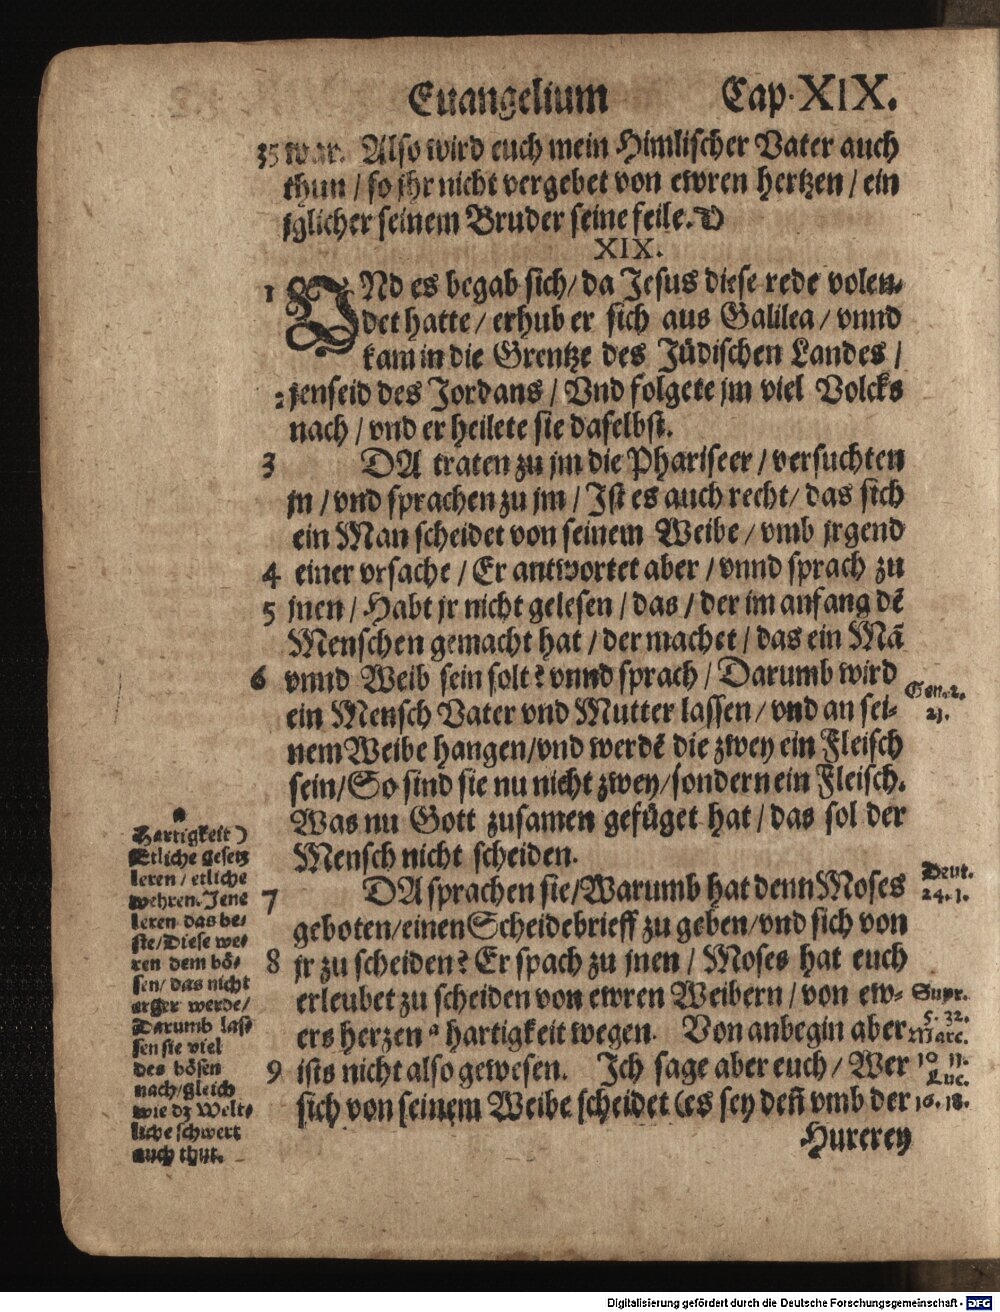 Euangelium Cap. XIX.
35 war. Also wird euch mein Himlischer Vater auch
thun / so jhr nicht vergebet von ewren hertzen / ein
jglicher seinem Bruder seine feile.
XIX.
1 VNd es begab sich / da Jesus diese rede volen-
det hatte / erhub er sich aus Galilea / vnnd
kam in die Grentze des Jüdischen Landes /
2 jenseid des Jordans / Vnd folgete jm viel Volcks
nach / vnd er heilete sie daselbst.
3 DA traten zu jm die Phariseer / versuchten
jn / vnd sprachen zu jm / Ist es auch recht / das sich
ein Man scheidet von seinem Weibe / vmb jrgend
4 einer vrsache / Er antwortet aber / vnnd sprach zu
5 jnen / Habt jr nicht gelesen / das / der im anfang dē
Menschen gemacht hat / der machet / das ein Mā
6 vnnd Weib sein solt? vnnd sprach / Darumb wird
ein Mensch Vater vnd Mutter lassen / vnd an sei-
nem Weibe hangen / vnd werdē die zwey ein Fleisch
sein / So sind sie nu nicht zwey / sondern ein Fleisch.
Was nu Gott zusamen gefüget hat / das sol der
Mensch nicht scheiden.
7 DA sprachen sie / Warumb hat denn Moses
geboten / einen Scheidebrieff zu geben / vnd sich von
8 jr zu scheiden? Er spach zu jnen / Moses hat euch
erleubet zu scheiden von ewren Weibern / von ew-
ers herzen a hartigkeit wegen. Von anbegin aber
9 ists nicht also gewesen. Ich sage aber euch / Wer
sich von seinem Weibe scheidet (es sey deñ vmb der
Hurerey
Gen. 2.
21.
Deut.
24. 1.
Supr.
5. 32.
Marc.
10 11.
Luc.
16. 18.
a
Hartigkeit)
Etliche gesetz
leren / etliche
wehren. Jene
leren das be-
ste / Diese we-
ren dem bö-
sen / das nicht
arger werde /
Darumb las-
sen sie viel
des bösen
nach / gleich
wie dz Welt-
liche schwert
auch thut.
Digitalisierung gefördert durch die Deutsche Forschungsgemeinschaft - DFG